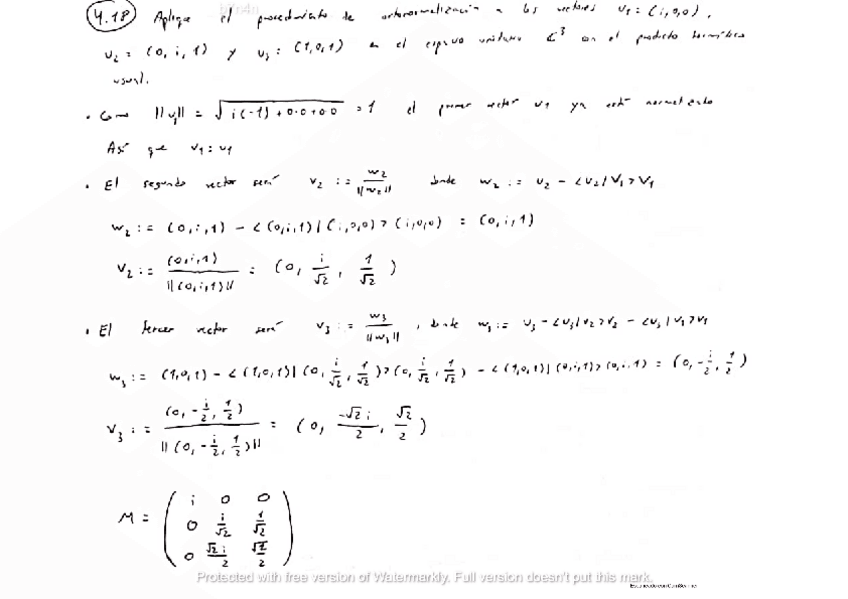 4.18 Aplique el procedimiento de ortonormalización a los vectores u₁ = (i,0,0),
u₂ = (0, i, 1) y u₃ = (1,0,1) en el espacio unitario ℂ³ con el producto hermítico
usual.
• Como ||u₁|| = √(i(-i) + 0·0 + 0·0) = 1 el primer vector u₁ ya está normalizado
Así que v₁ = u₁
• El segundo vector será v₂ := w₂/||w₂|| donde w₂ := u₂ - <u₂|v₁>v₁
w₂ := (0,i,1) - <(0,i,1)|(i,0,0)>(i,0,0) = (0,i,1)
v₂ := (0,i,1)/||(0,i,1)|| = (0, i/√2, 1/√2)
• El tercer vector será v₃ := w₃/||w₃||, donde w₃ := u₃ - <u₃|v₂>v₂ - <u₃|v₁>v₁
w₃ := (1,0,1) - <(1,0,1)|(0, i/√2, 1/√2)>(0, i/√2, 1/√2) - <(1,0,1)|(0,i,1)>(0,i,1) = (0, -i/2, 1/2)
v₃ := (0, -i/2, 1/2)/||(0, -i/2, 1/2)|| = (0, -√2 i/2, √2/2)
M = ( i 0 0
0 i/√2 1/√2
0 √2 i/2 √2/2 )
Protected with free version of Watermarkly. Full version doesn't put this mark.
Escaneado con CamScanner